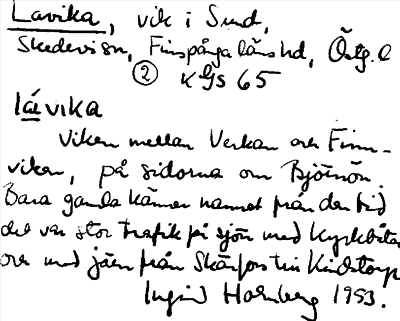 Lavika, vik i Sund,
Skedevi sn, Finspånga länshd, Östg. l
② K GS 65
låvika
Viken mellan Verkan och Finn-
viken, på sidorna om Björnön.
Bara gamla känner namnet från den tid
det var stor trafik på sjön med kyrkbåtar
och med järn från Skärfors till
Ingrid Holmberg 1953.